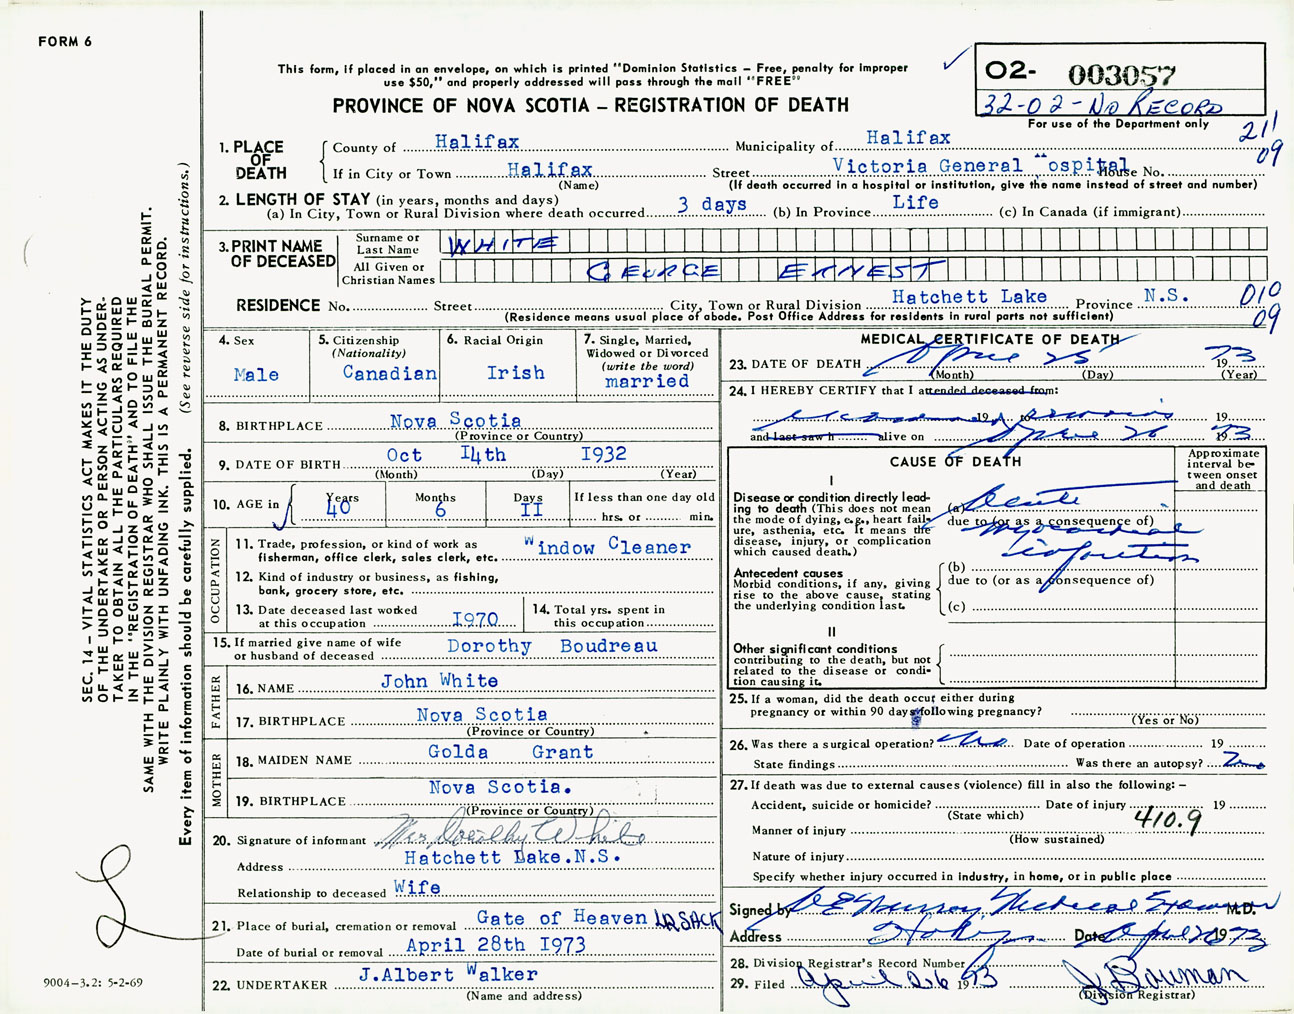 FORM 6
This form, if placed in an envelope, on which is printed "Dominion Statistics – Free, penalty for improper
use $50," and properly addressed will pass through the mail "FREE"
PROVINCE OF NOVA SCOTIA – REGISTRATION OF DEATH
02- 003057
32-02-NO RECORD
For use of the Department only
211
09
1. PLACE OF DEATH
County of Halifax Municipality of Halifax
If in City or Town Halifax Street Victoria General Hospital House No.
(Name) (If death occurred in a hospital or institution, give the name instead of street and number)
2. LENGTH OF STAY (in years, months and days)
(a) In City, Town or Rural Division where death occurred 3 days (b) In Province Life (c) In Canada (if immigrant)
3. PRINT NAME OF DECEASED
Surname or Last Name WHITE
All Given or Christian Names GEORGE ERNEST
RESIDENCE No. Street City, Town or Rural Division Hatchett Lake Province N.S. 010
09
(Residence means usual place of abode. Post Office Address for residents in rural parts not sufficient)
4. Sex
Male
5. Citizenship
(Nationality)
Canadian
6. Racial Origin
Irish
7. Single, Married,
Widowed or Divorced
(write the word)
married
8. BIRTHPLACE Nova Scotia
(Province or Country)
9. DATE OF BIRTH Oct I4th I932
(Month) (Day) (Year)
10. AGE in
Years Months Days If less than one day old
40 6 II hrs. or min.
OCCUPATION
11. Trade, profession, or kind of work as
fisherman, office clerk, sales clerk, etc. Window Cleaner
12. Kind of industry or business, as fishing,
bank, grocery store, etc.
13. Date deceased last worked
at this occupation I970
14. Total yrs. spent in
this occupation
15. If married give name of wife
or husband of deceased Dorothy Boudreau
FATHER
16. NAME John White
17. BIRTHPLACE Nova Scotia
(Province or Country)
MOTHER
18. MAIDEN NAME Golda Grant
19. BIRTHPLACE Nova Scotia.
(Province or Country)
20. Signature of informant Mrs Dorothy White
Address Hatchett Lake.N.S.
Relationship to deceased Wife
21. Place of burial, cremation or removal Gate of Heaven LR SACK
Date of burial or removal April 28th I973
22. UNDERTAKER J.Albert Walker
(Name and address)
MEDICAL CERTIFICATE OF DEATH
23. DATE OF DEATH April 25 1973
(Month) (Day) (Year)
24. I HEREBY CERTIFY that I attended deceased from:
19 to 19
and last saw h alive on April 26 1973
CAUSE OF DEATH
Approximate
interval be-
tween onset
and death
I
Disease or condition directly lead-
ing to death (This does not mean
the mode of dying, e.g., heart fail-
ure, asthenia, etc. It means the
disease, injury, or complication
which caused death.)
(a) Acute
due to (or as a consequence of)
myocardial
infarction
Antecedent causes
Morbid conditions, if any, giving
rise to the above cause, stating
the underlying condition last.
(b)
due to (or as a consequence of)
(c)
II
Other significant conditions
contributing to the death, but not
related to the disease or condi-
tion causing it.
25. If a woman, did the death occur either during
pregnancy or within 90 days following pregnancy?
(Yes or No)
26. Was there a surgical operation? No Date of operation 19
State findings Was there an autopsy? No
27. If death was due to external causes (violence) fill in also the following: –
Accident, suicide or homicide? Date of injury 19
(State which)
410.9
Manner of injury
(How sustained)
Nature of injury
Specify whether injury occurred in industry, in home, or in public place
Signed by Murray, Medical Examiner M.D.
Address Date April 26 1973
28. Division Registrar's Record Number
29. Filed April 26 1973 J Bowman
(Division Registrar)
SEC. 14 – VITAL STATISTICS ACT MAKES IT THE DUTY
OF THE UNDERTAKER OR PERSON ACTING AS UNDER-
TAKER TO OBTAIN ALL THE PARTICULARS REQUIRED
IN THE "REGISTRATION OF DEATH" AND TO FILE THE
SAME WITH THE DIVISION REGISTRAR WHO SHALL ISSUE THE BURIAL PERMIT.
WRITE PLAINLY WITH UNFADING INK. THIS IS A PERMANENT RECORD.
Every item of information should be carefully supplied. (See reverse side for instructions.)
9004-3.2: 5-2-69